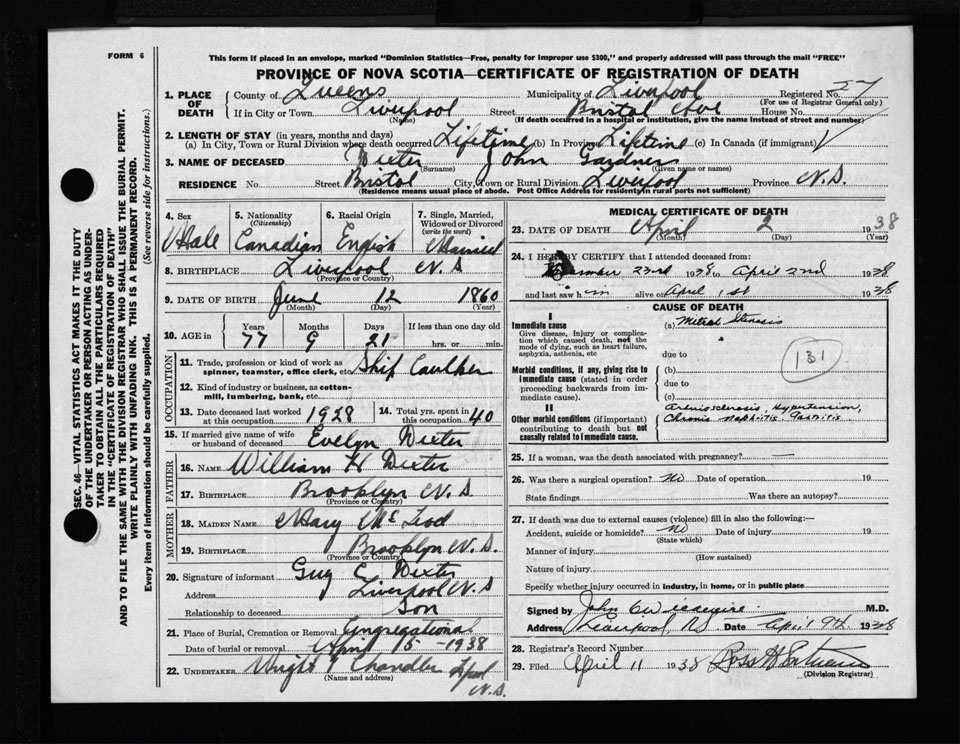 FORM 6
This form if placed in an envelope, marked "Dominion Statistics—Free, penalty for improper use $300," and properly addressed will pass through the mail "FREE"
PROVINCE OF NOVA SCOTIA—CERTIFICATE OF REGISTRATION OF DEATH
1. PLACE OF DEATH County of Queens Municipality of Liverpool Registered No.
(For use of Registrar General only)
If in City or Town Liverpool Street Bristol Ave House No.
(Name) (If death occurred in a hospital or institution, give the name instead of street and number)
2. LENGTH OF STAY (in years, months and days)
(a) In City, Town or Rural Division where death occurred Lifetime (b) In Province Lifetime (c) In Canada (if immigrant)
3. NAME OF DECEASED Dexter John Gardner
(Surname) (Given name or names)
RESIDENCE No. Street Bristol City, Town or Rural Division Liverpool Province N.S.
(Residence means usual place of abode. Post Office Address for residents in rural parts not sufficient)
4. Sex Male
5. Nationality (Citizenship) Canadian
6. Racial Origin English
7. Single, Married, Widowed or Divorced (write the word) Married
8. BIRTHPLACE Liverpool N.S
(Province or Country)
9. DATE OF BIRTH June 12 1860
(Month) (Day) (Year)
10. AGE in Years 77 Months 9 Days 21 If less than one day old hrs. or min.
OCCUPATION
11. Trade, profession or kind of work as spinner, teamster, office clerk, etc. Ship Caulker
12. Kind of industry or business, as cotton-mill, lumbering, bank, etc.
13. Date deceased last worked at this occupation 1928
14. Total yrs. spent in this occupation 40
15. If married give name of wife or husband of deceased Evelyn Dexter
FATHER
16. NAME William H Dexter
17. BIRTHPLACE Brooklyn N.S.
(Province or Country)
MOTHER
18. MAIDEN NAME Mary McLeod
19. BIRTHPLACE Brooklyn N.S.
(Province or Country)
20. Signature of informant Guy C Dexter
Address Liverpool N.S
Relationship to deceased Son
21. Place of Burial, Cremation or Removal Congregational
Date of burial or removal April 5 - 1938
22. UNDERTAKER Wright & Chandler Lpool N.S.
(Name and address)
MEDICAL CERTIFICATE OF DEATH
23. DATE OF DEATH April 2 1938
(Month) (Day) (Year)
24. I HEREBY CERTIFY that I attended deceased from:
23rd 1938 to April 2nd 1938
and last saw him alive on April 1st 1938
CAUSE OF DEATH
I
Immediate cause (a) Mitral Stenosis
Give disease, injury or complication which caused death, not the mode of dying, such as heart failure, asphyxia, asthenia, etc
due to
131
Morbid conditions, if any, giving rise to immediate cause (stated in order proceeding backwards from immediate cause).
(b)
due to
(c)
II
Other morbid conditions (if important) contributing to death but not causally related to immediate cause.
Arteriosclerosis, Hypertension,
Chronic Nephritis, Gastritis
25. If a woman, was the death associated with pregnancy? —
26. Was there a surgical operation? No Date of operation 19
State findings Was there an autopsy?
27. If death was due to external causes (violence) fill in also the following:—
Accident, suicide or homicide? No Date of injury 19
(State which)
Manner of injury
(How sustained)
Nature of injury
Specify whether injury occurred in industry, in home, or in public place
Signed by John M.D.
Address Liverpool, NS Date April 9th 1938
28. Registrar's Record Number
29. Filed April 11 1938 Ross H
(Division Registrar)
SEC. 46—VITAL STATISTICS ACT MAKES IT THE DUTY
OF THE UNDERTAKER OR PERSON ACTING AS UNDER-
TAKER TO OBTAIN ALL THE PARTICULARS REQUIRED
IN THE "CERTIFICATE OF REGISTRATION OF DEATH"
AND TO FILE THE SAME WITH THE DIVISION REGISTRAR WHO SHALL ISSUE THE BURIAL PERMIT.
WRITE PLAINLY WITH UNFADING INK. THIS IS A PERMANENT RECORD.
Every item of information should be carefully supplied. (See reverse side for instructions.)